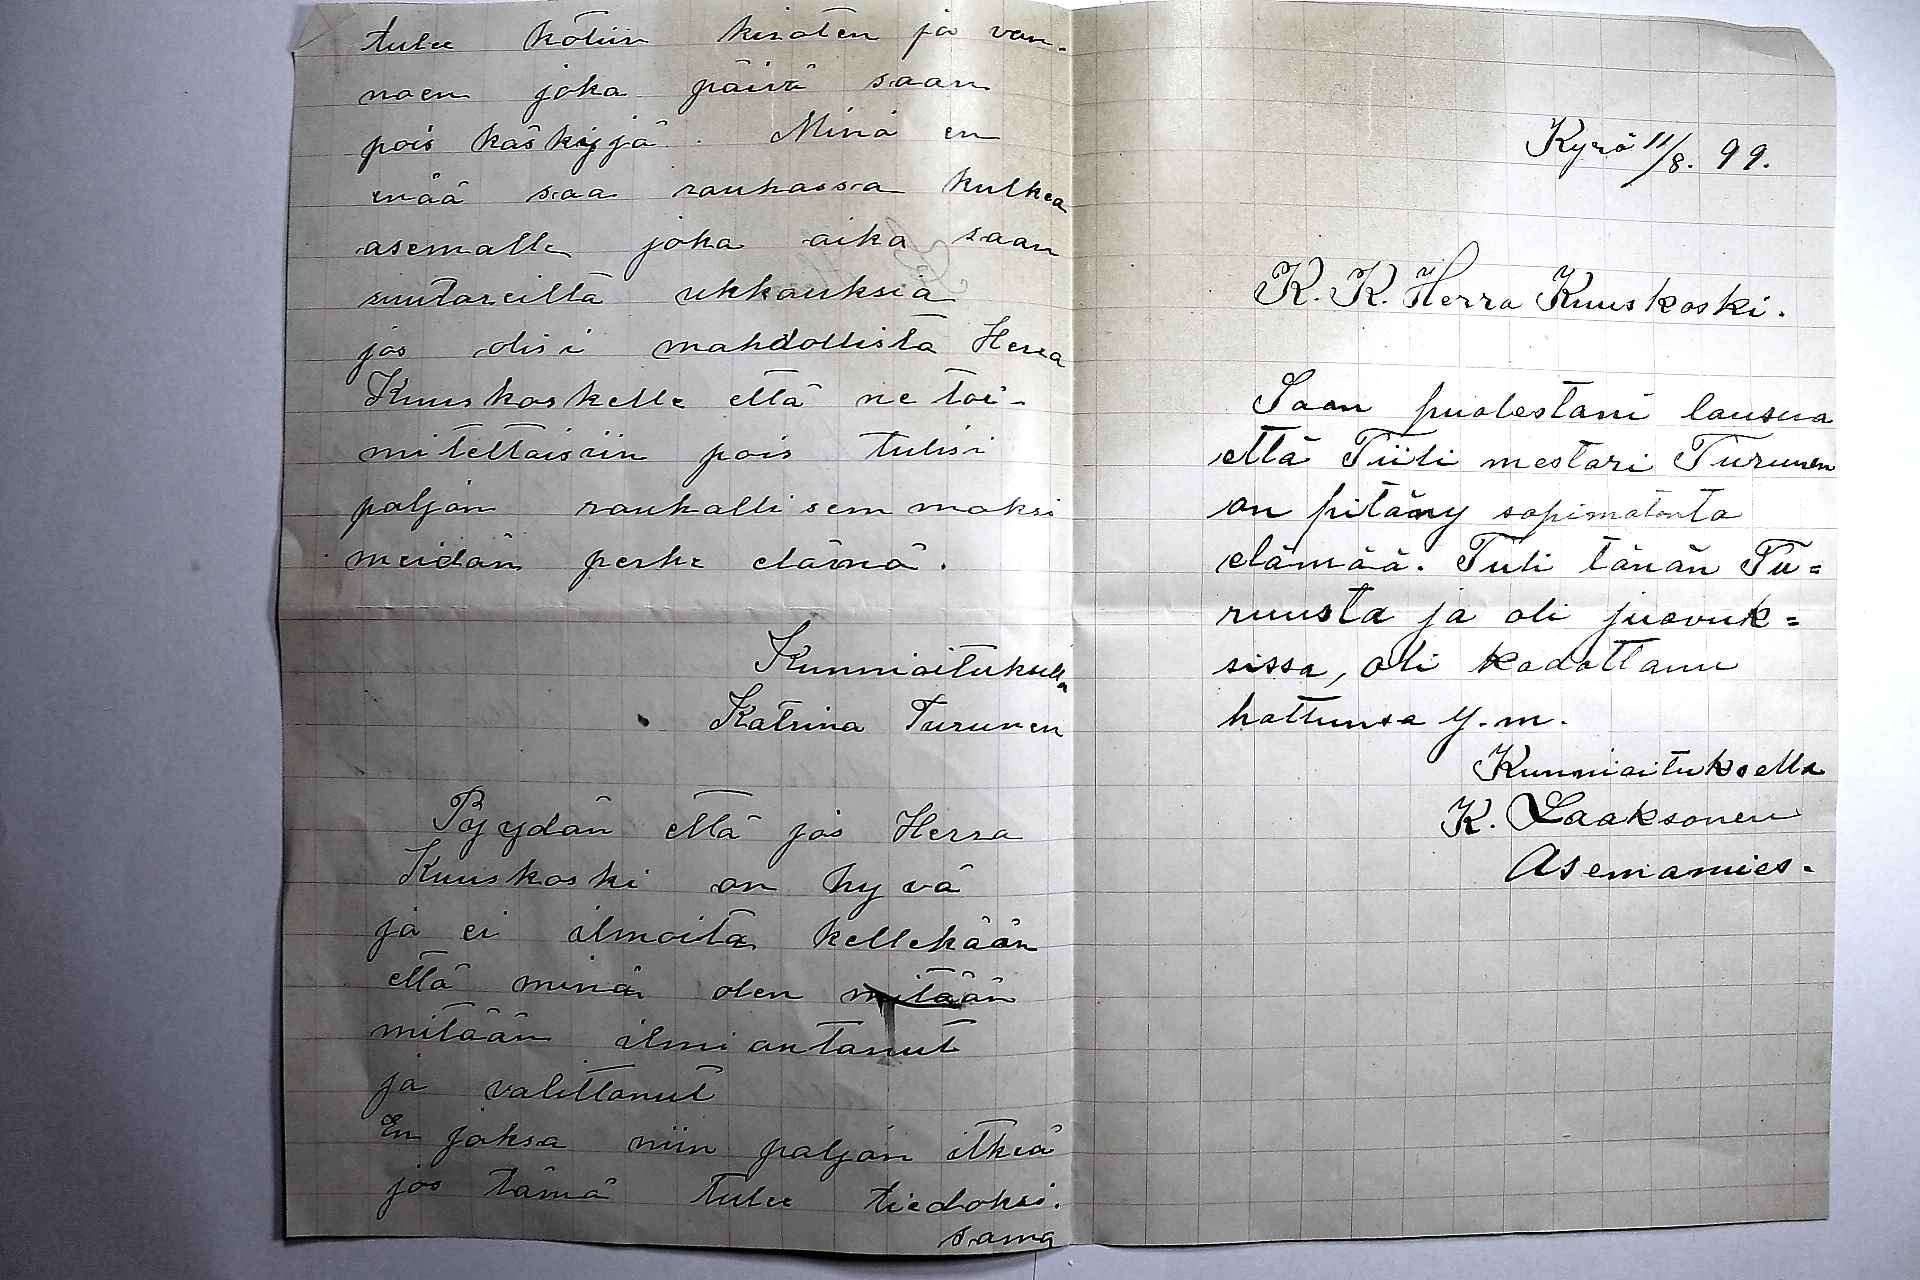 tulee kotiin kiroten ja van-
noen joka päivä saan
pois käskyjä. Minä en
enää saa rauhassa kulkea
asemalle joka aika saan
suutareilta uhkauksia
jos olisi mahdollista Herra
Kuuskoskelle että ne toi-
mitettaisiin pois tulisi
paljon rauhallisemmaksi
meidän perhe elämä.
Kunnioituksella
Katrina Turunen
Pyydän että jos Herra
Kuuskoski on hyvä
ja ei ilmoita kellekään
että minä olen mitään
mitään ilmiantanut
ja valittanut
En jaksa niin paljon itkeä
jos tämä tulee tiedoksi.
sama
Kyrö 11/8. 99.
K. K. Herra Kuuskoski.
Saan puolestani lausua
että Tiili mestari Turunen
on pitäny sopimatonta
elämää. Tuli tänän Tu=
ruusta ja oli juovuk=
sissa, oli kadottanu
hattunsa y. m.
Kunnioituksella
K. Laaksonen
Asemamies.